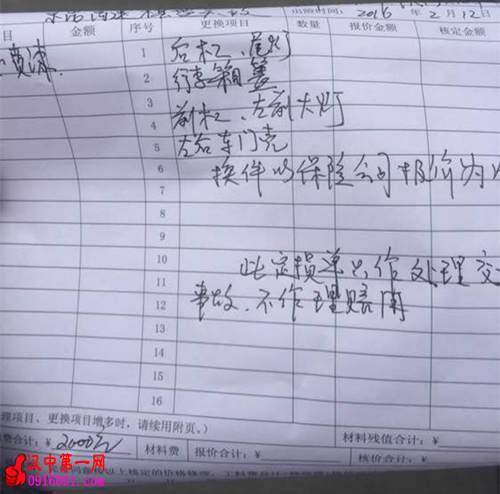 出险时间: 2016 年 2 月 12 日
目 金额 序号 更换项目 数量 报价金额 核定金额
1 后杠、尾灯
2 行李箱盖
3
4 前杠、左前大灯
5 左右车门壳
6 换件以保险公司报价为
7
8
9
10 此定损单只作处理交
11
12 事故、不作理赔用
13
14
15
16
理项目、更换项目增多时,请续用附页。)
费合计:¥ 2000元 材料费 报价合计:¥ 材料残值合计:¥
核价合计:¥
汉中第一网
0916001.com